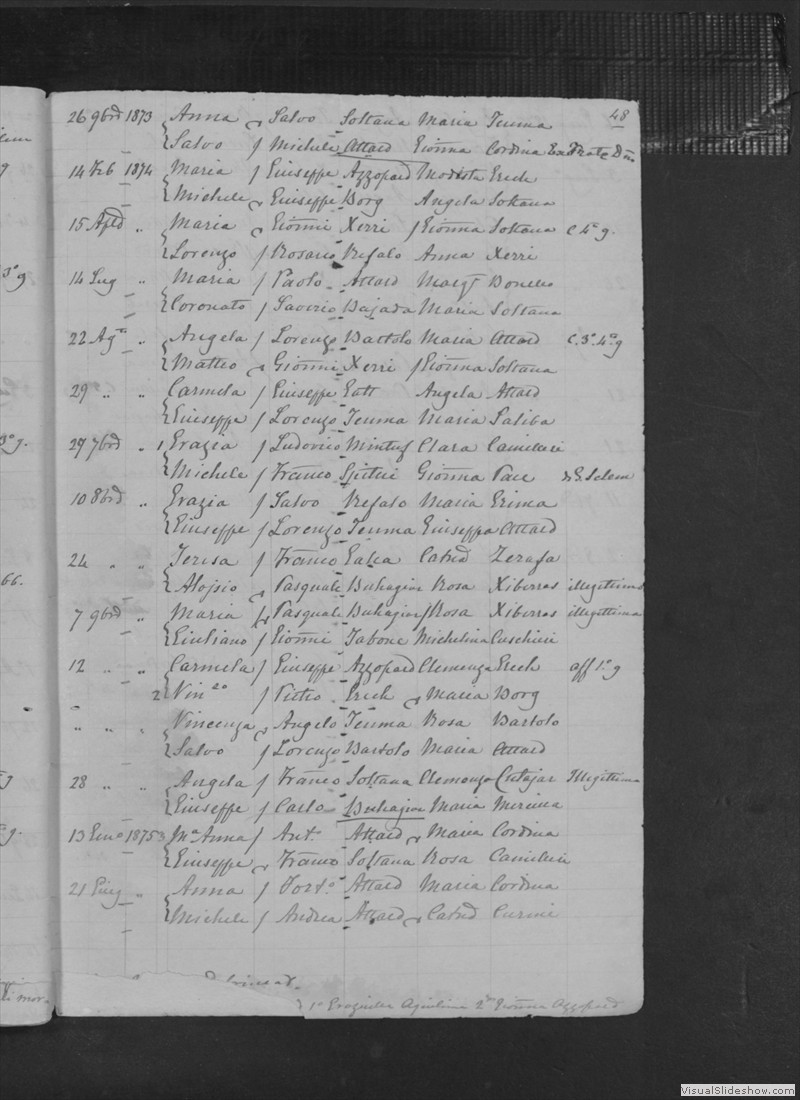 48
26 9brd 1873 Anna Salvo Soltana Maria Teuma
Salvo / Michele Attard Giōnna Cordina
14 Feb 1874 Maria / Giuseppe Azzopard Modesta Grech
Michele Giuseppe Borg Angela Soltana
15 Aple " Maria Giōnni Xerri / Giōnna Soltana C 4º g.
Lorenzo / Rosario Refalo Anna Xerri
14 Lug " Maria / Paolo Attard Margt Bonello
Coronato / Saverio Bajada Maria Soltana
22 Agto " Angela / Lorenzo Bartolo Maria Attard C. 3º. 4º g
Matteo Giōnni Xerri / Giōnna Soltana
29 " " Carmela / Giuseppe Gatt Angela Attard
Giuseppe / Lorenzo Teuma Maria Saliba
29 7brd " 1 Grazia / Ludovico Mintuf Clara Camilleri
Michele / Franco Spiteri Giōnna Pace
10 8brd " Grazia / Salvo Refalo Maria Grima
Giuseppe / Lorenzo Teuma Giuseppa Attard
24 " " Teresa / Franco Galea Catnd Zerafa
Alojsio Pasquale Buhagiar Rosa Xiberras illegittimo
7 9brd " Maria Pasquale Buhagiar / Rosa Xiberras illegittima
Giuliano / Giōnni Tabone Michelina Cuschieri
12 " " Carmela / Giuseppe Azzopard Clemenza Grech aff 1º g
2 Vinzo / Pietro Grech Maria Borg
" " " Vincenza Angelo Teuma Rosa Bartolo
Salvo / Lorenzo Bartolo Maria Attard
28 " " Angela / Franco Soltana Clemenza Cutajar Illegittima
Giuseppe / Carlo Buhagiar Maria Mercieca
13 Genº 1875 3 Mª Anna / Antº Attard Maria Cordina
Giuseppe Franco Soltana Rosa Camilleri
21 Giug " Anna / Fortº Attard Maria Cordina
Michele / Andrea Attard Catnd Curmi
1º Graziella Aquilina 2º Giōnna Azzopard
VisualSlideshow.com